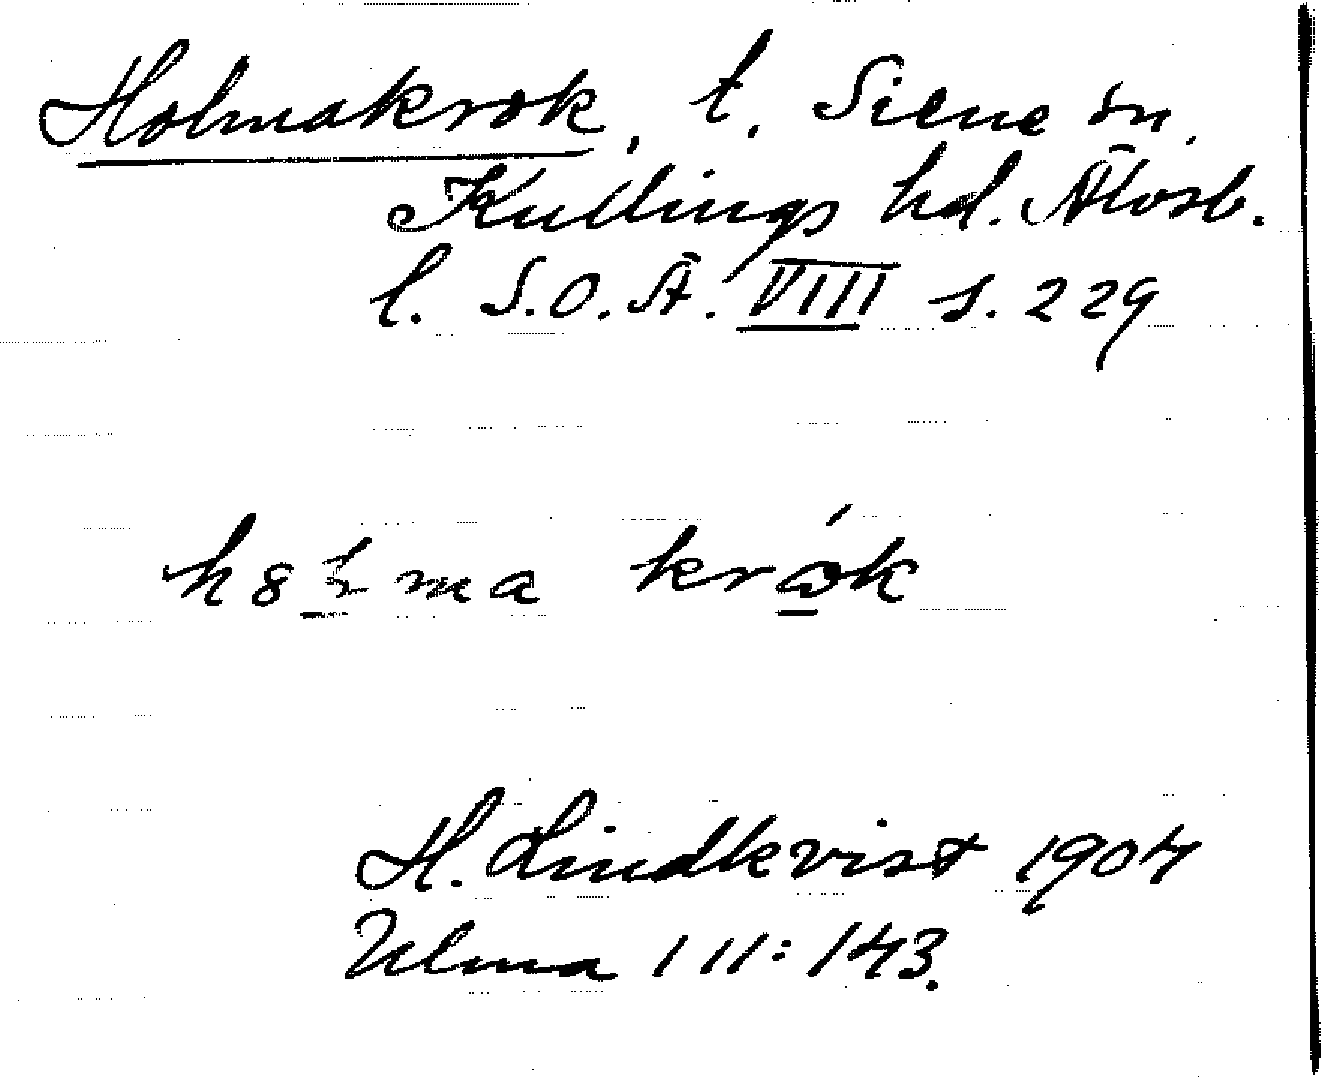 Holmakrok, t. Siene sn,
Kullings hd. Älvsb.
l. S.O.Ä. VIII s. 229
krók
H. Lindkvist 1904
Ulma 111:143.